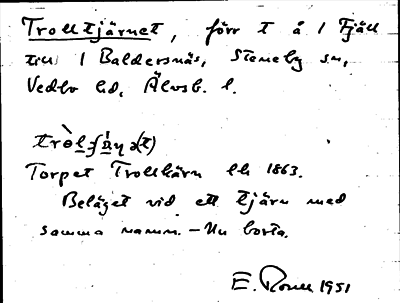 Trolltjärnet, förr t å 1 Fjäll
till 1 Baldersnäs, Steneby sn,
Vedbo hd, Älvsb. l.
Torpet Trollkärn hl 1863.
Beläget vid ett tjärn med
samma namn. – Nu borta.
E. 1951